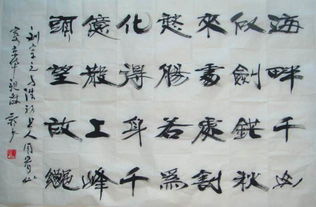 海畔千山
似劍鋩秋
來處處割
愁腸若為
化得身千
億散上峰
頭望故鄉
柳宗元与浩初上人同看山
寄京華親故